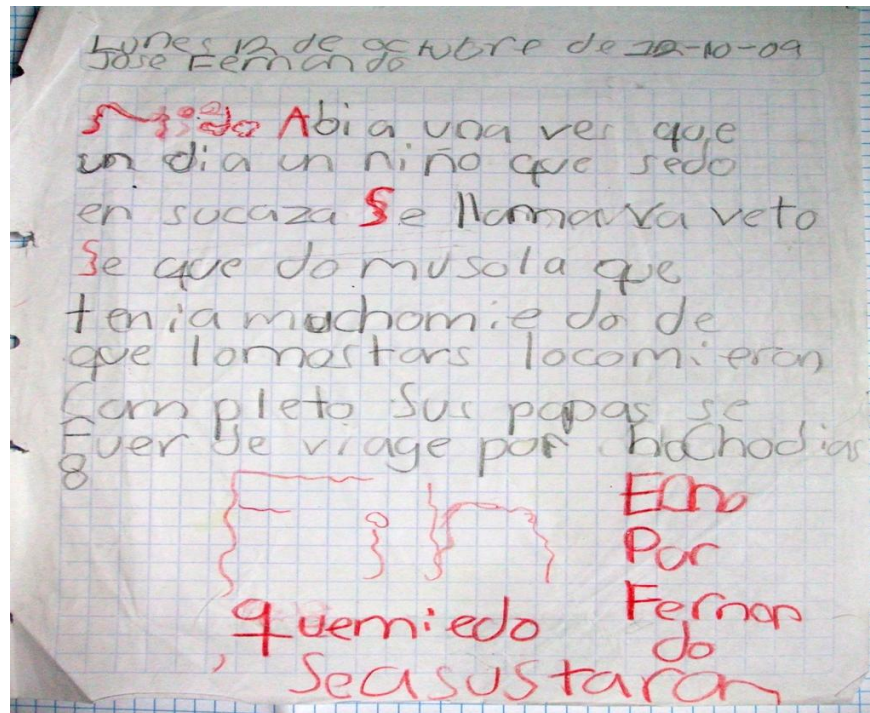 Lunes 12 de octubre de 12-10-09
Jose Fernando
Abia una ves que
un dia un niño que sedo
en sucaza Se llamava veto
Se que do musola que
tenia muchomie do de
que lomostars locomieron
Completo Sus papas se
Fuer de viage por hochodias
8
Fin
Echo
Por
Fernan
do
quemiedo
Seasustaran